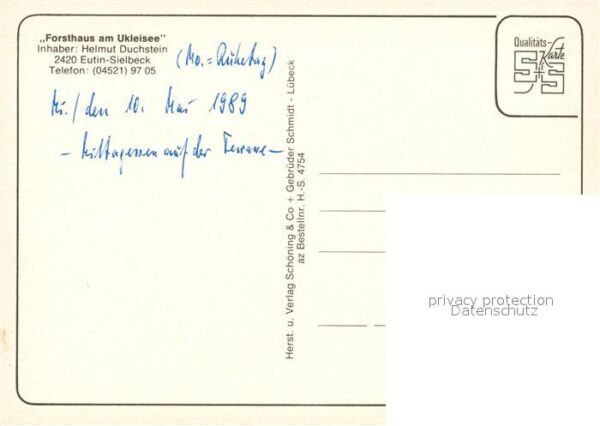 „Forsthaus am Ukleisee"
Inhaber: Helmut Duchstein
2420 Eutin-Sielbeck
Telefon: (04521) 97 05
(Mo. = Ruhetag)
Mi./den 10. Mai 1989
- Mittagessen auf der Terrasse -
Herst. u. Verlag Schöning & Co + Gebrüder Schmidt - Lübeck
az Bestellnr. H.-S. 4754
Qualitäts-
Karte
S+S
privacy protection
Datenschutz